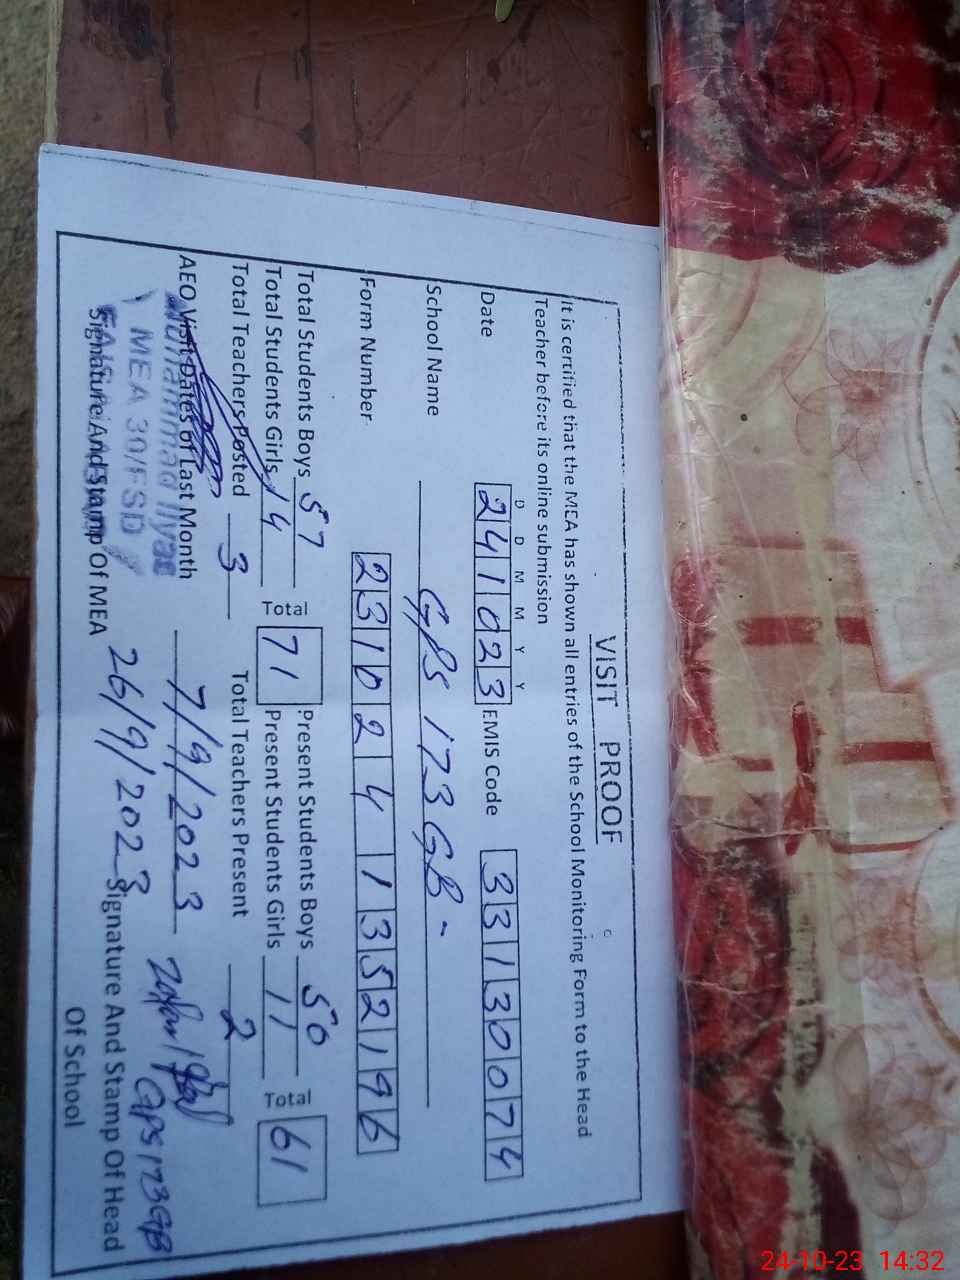 VISIT PROOF
It is certified that the MEA has shown all entries of the School Monitoring Form to the Head
Teacher before its online submission
D D M M Y Y
Date 241023 EMIS Code 33130074
School Name GPS 173 GB-
Form Number 2310241352196
Total Students Boys 57 Total 71 Present Students Boys 50 Total 61
Total Students Girls 14 Present Students Girls 11
Total Teachers Posted 3 Total Teachers Present 2
AEO Visit Dates of Last Month 7/9/2023
Muhammad Ilyas
MEA 30/FSD
26/9/2023
GPS 173 GB
Signature And Stamp Of MEA Signature And Stamp Of Head
Of School
24-10-23 14:32